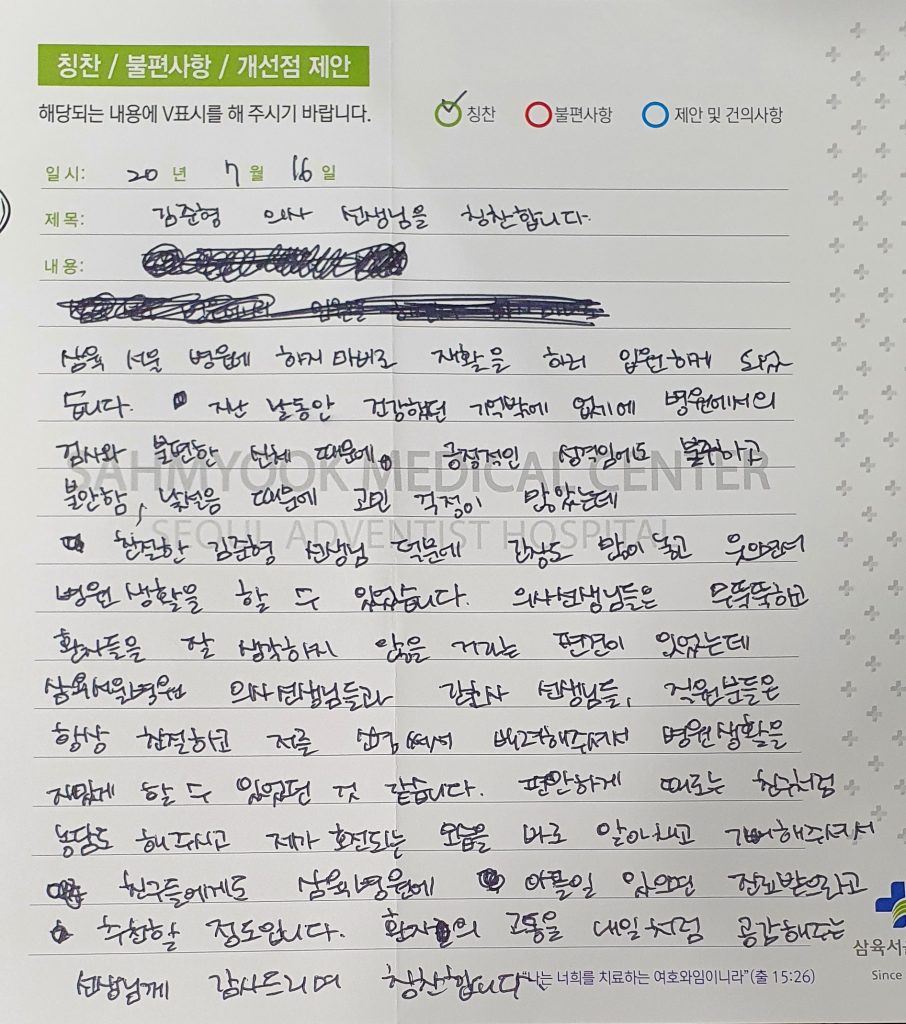 칭찬 / 불편사항 / 개선점 제안
해당되는 내용에 V표시를 해 주시기 바랍니다.
칭찬 불편사항 제안 및 건의사항
일시: 20 년 7 월 16 일
제목: 김준형 의사 선생님을 칭찬합니다.
내용:
삼육 서울 병원에 하지마비로 재활을 하러 입원하게 되었
습니다. 지난 날동안 건강했던 기억밖에 없기에 병원에서의
검사와 불편한 신체 때문에 긍정적인 성격임에도 불구하고
불안함, 낯설음 때문에 고민 걱정이 많았는데
SAHMYOOK MEDICAL CENTER
SEOUL ADVENTIST HOSPITAL
친절한 김준형 선생님 덕분에 긴장도 많이 놓고 웃으면서
병원 생활을 할 수 있었습니다. 의사선생님들은 무뚝뚝하고
환자들을 잘 생각하지 않을 거라는 편견이 있었는데
삼육서울병원 의사선생님들과 간호사 선생님들, 직원분들은
항상 친절하고 저를 배려해주셔서 병원생활을
재밌게 할 수 있었던 것 같습니다. 편안하게 때로는 친구처럼
농담도 해주시고 제가 호전되는 모습을 바로 알아채고 기뻐해주셔서
친구들에게도 삼육병원에 아플일 있으면 진료받으라고
추천할 정도입니다. 환자의 고통을 내일처럼 공감해주는
선생님께 감사드리며 칭찬합니다
"나는 너희를 치료하는 여호와임이니라"(출 15:26)
삼육서울
Since